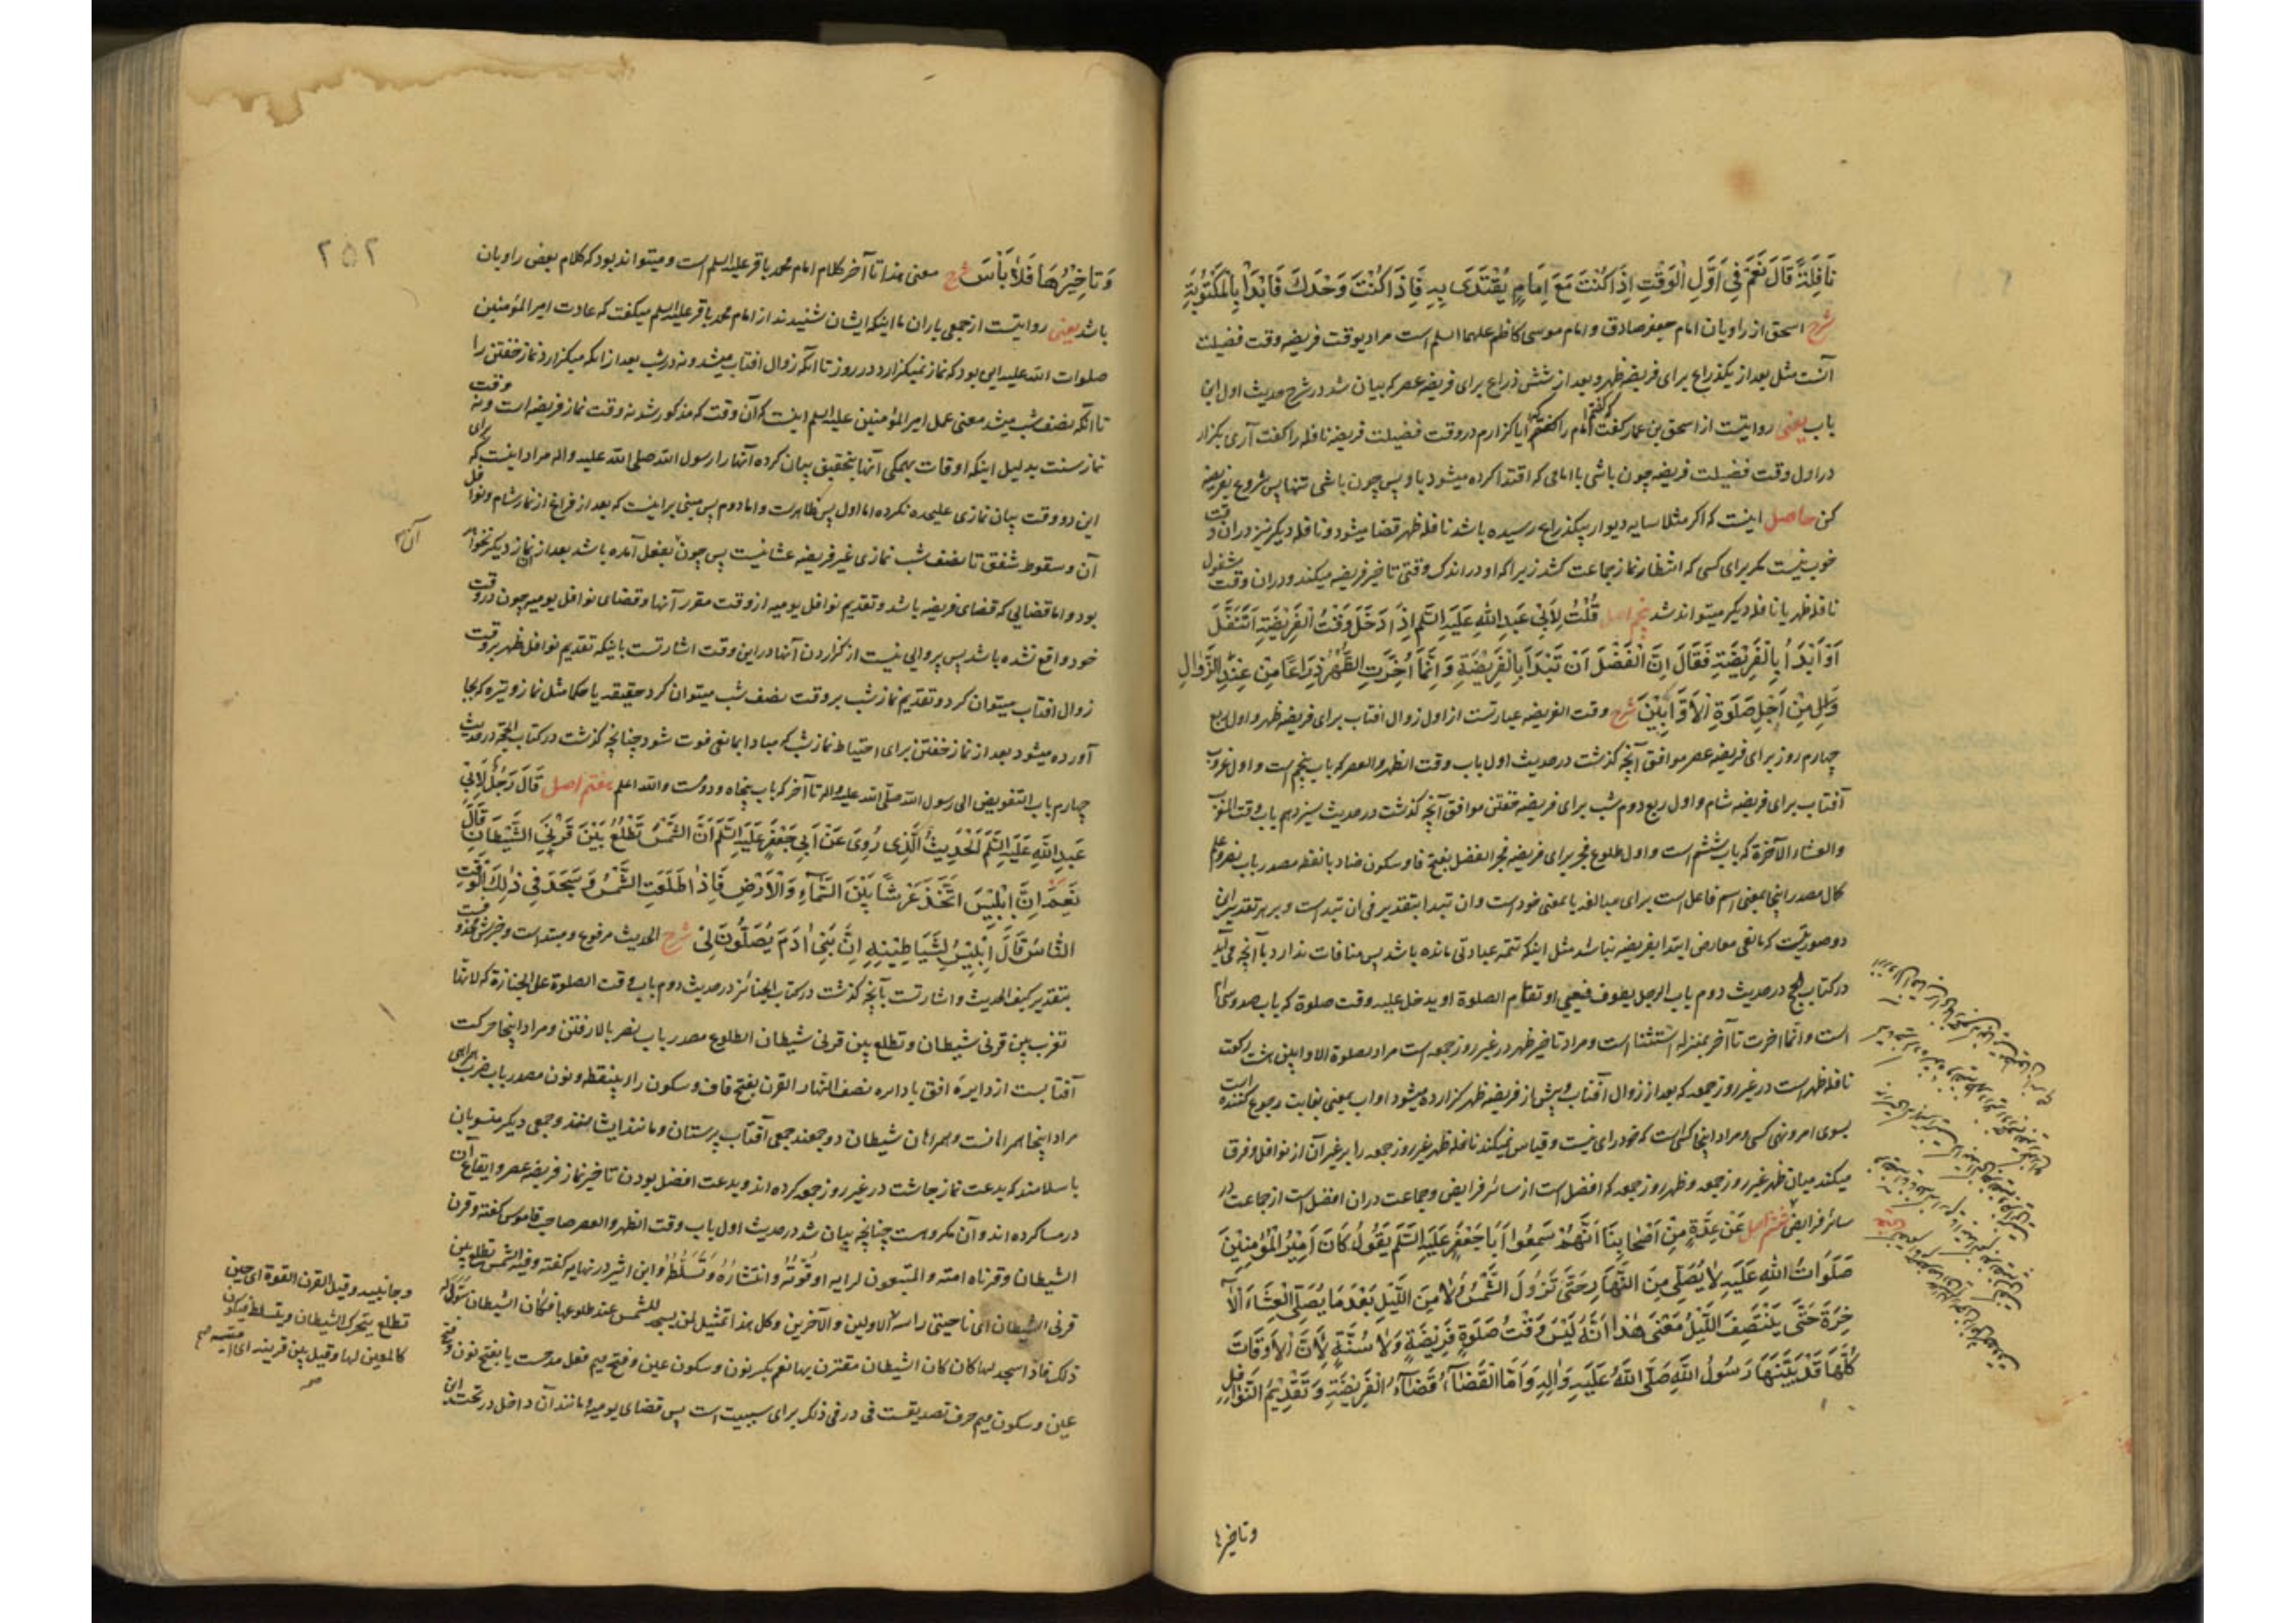 نَافِلَةً قَالَ نَعَمْ فِي اَوَّلِ الْوَقْتِ اِذَا كُنْتَ مَعَ اِمَامٍ يُقْتَدَى بِهِ فَاِذَا كُنْتَ وَحْدَكَ فَابْدَأْ بِالْمَكْتُوبَةِ
شرح اسحق از راویان امام جعفر صادق و امام موسی کاظم علیهما السلم است مراد بوقت فریضه وقت فضیلت
آنست مثل بعد از یکذراع برای فریضه ظهر و بعد از شش ذراع برای فریضه عصر که بیان شد در شرح حدیث اول این
باب یعنی روایتست از اسحق بن عمار گفت که گفتم امام را آیا گزارم در وقت فضیلت فریضه نافله را گفت آری بگزار
در اول وقت فضیلت فریضه چون باشی با امامی که اقتدا کرده میشود باو پس چون باشی تنها پس شروع بفریضه
کن حاصل اینست که اگر مثلا سایه دیوار بیکذراع رسیده باشد نافله ظهر قضا میشود و نافله دیگر نیز در ان وقت
خوب نیست مگر برای کسی که انتظار نماز جماعت کشد زیرا که او در اندک وقتی تاخیر فریضه میکند و در ان وقت مشغول
نافله ظهر یا نافله دیگر میتواند شد پنجم اصل قُلْتُ لِاَبِي عَبْدِ اللّٰهِ عَلَيْهِ السَّلَم اِذَا دَخَلَ وَقْتُ الْفَرِيْضَةِ اَتَنَفَّلُ
اَوْ اَبْدَأُ بِالْفَرِيْضَةِ فَقَالَ اِنَّ الْفَضْلَ اَنْ تَبْدَأَ بِالْفَرِيْضَةِ وَاِنَّمَا اُخِّرَتِ الظُّهْرُ ذِرَاعًا مِنْ عِنْدِ الزَّوَالِ
مِنْ اَجْلِ صَلٰوةِ الْاَوَّابِيْنَ شرح وقت الفریضه عبارتست از اول زوال افتاب برای فریضه ظهر و اول ربع
چهارم روز برای فریضه عصر موافق آنچه گذشت در حدیث اول باب وقت الظهر و العصر که باب پنجم است و اول غروب
آفتاب برای فریضه شام و اول ربع دوم شب برای فریضه خفتن موافق آنچه گذشت در حدیث سیزدهم باب وقت المغرب
والعشاء الآخرة که باب ششم است و اول طلوع فجر برای فریضه فجر الفضل بفتح فا و سکون ضاد با نقطه مصدر باب نصر و علم
کال مصدر اینجا بمعنی اسم فاعل است برای مبالغه یا بمعنی خود است و ان تبدا بتقدیر فی ان تبدا است و بر هر تقدیر این
دو صورتیست که مانعی معارض ابتدا بفریضه نباشد مثل اینکه تتمه عبادتی مانده باشد پس منافات ندارد با آنچه می‌آید
در کتاب الحج در حدیث دوم باب الرجل یطوف فیعیی او تقام الصلوة او یدخل علیه وقت صلوة که باب صد و سی‌ام
است و انما اخرت تا آخر بمنزله استثنا است و مراد تاخیر ظهر در غیر روز جمعه است مراد بصلوة الاوابین هشت رکعت
نافله ظهر است در غیر روز جمعه که بعد از زوال آفتاب و پیش از فریضه ظهر گزارده میشود اواب بمعنی بغایت رجوع کننده است
بسوی امر و نهی کسی و مراد اینجا کسی است که خود رای نیست و قیاس نمیکند نافله ظهر غیر روز جمعه را بر غیر آن از نوافل و فرقا
میکند میان ظهر غیر روز جمعه و ظهر روز جمعه که افضل است از سائر فرایض و جماعت دران افضل است از جماعت در
سائر فرایض ششم اصل عَنْ عِدَّةٍ مِنْ اَصْحَابِنَا اَنَّهُمْ سَمِعُوا اَبَا جَعْفَرٍ عَلَيْهِ السَّلَم يَقُولُ كَانَ اَمِيْرُ الْمُؤْمِنِيْنَ
صَلَوَاتُ اللّٰهِ عَلَيْهِ لَا يُصَلِّي مِنَ النَّهَارِ حَتّٰى تَزُولَ الشَّمْسُ وَلَا مِنَ اللَّيْلِ بَعْدَ مَا يُصَلِّي الْعِشَاءَ الْاٰ
خِرَةَ حَتّٰى يَنْتَصِفَ اللَّيْلُ مَعْنٰى هٰذَا اَنَّهُ لَيْسَ وَقْتُ صَلٰوةِ فَرِيْضَةٍ وَلَا سُنَّةٍ لِاَنَّ الْاَوْقَاتَ
كُلَّهَا قَدْ بَيَّنَهَا رَسُولُ اللّٰهِ صَلَّى اللّٰهُ عَلَيْهِ وَاٰلِهِ وَاَمَّا الْقَضَاءُ قَضَاءُ الْفَرِيْضَةِ وَتَقْدِيْمُ النَّوَافِلِ
وتاخیرها
٢٥٢
وَتَاخِيْرُهَا فَلَا بَأْسَ شرح معنی هذا تا آخر کلام امام محمد باقر علیه السلم است و میتواند بود که کلام بعض راویان
باشد یعنی روایتست از جمعی یاران ما اینکه ایشان شنیدند از امام محمد باقر علیه السلم میگفت که عادت امیر المؤمنین
صلوات الله علیه این بود که نماز نمیگزارد در روز تا آنکه زوال افتاب میشد و نه در شب بعد از انکه میگزارد نماز خفتن را
تا آنکه نصف شب میشد معنی عمل امیر المؤمنین علیه السلم اینست که آن وقت که مذکور شد نه وقت نماز فریضه است و نه وقت
نماز سنت بدلیل اینکه اوقات همگی آنها بتحقیق بیان کرده آنها را رسول الله صلی الله علیه واله مراد اینست که برای
این دو وقت بیان نمازی علیحده نکرده اما اول پس ظاهرست و اما دوم پس مبنی بر اینست که بعد از فراغ از نماز شام و نوافل
آن و سقوط شفق تا نصف شب نمازی غیر فریضه عشا نیست پس چون بفعل آمده باشد بعد از آن نماز دیگر نخواهد
بود و اما قضایی که قضای فریضه باشد و تقدیم نوافل یومیه از وقت مقرر آنها و قضای نوافل یومیه چون در وقت
خود واقع نشده باشد پس پروایی نیست از گزاردن آنها در این وقت اشارتست باینکه تقدیم نوافل ظهر بر وقت
زوال افتاب میتوان کرد و تقدیم نماز شب بر وقت نصف شب میتوان کرد حقیقه یا حکما مثل نماز وتیره که بجا
آورده میشود بعد از نماز خفتن برای احتیاط نماز شب که مبادا بمانعی فوت شود چنانچه گذشت در کتاب الحجه در حدیث
چهارم باب التفویض الی رسول الله صلی الله علیه واله تا آخر که باب پنجاه و دومست والله اعلم هفتم اصل قَالَ رَجُلٌ لِاَبِي
عَبْدِ اللّٰهِ عَلَيْهِ السَّلَم الْحَدِيْثُ الَّذِي رُوِيَ عَنْ اَبِي جَعْفَرٍ عَلَيْهِ السَّلَم اَنَّ الشَّمْسَ تَطْلُعُ بَيْنَ قَرْنَيِ الشَّيْطَانِ قَالَ
نَعَمْ اِنَّ اِبْلِيْسَ اتَّخَذَ عَرْشًا بَيْنَ السَّمَاءِ وَالْاَرْضِ فَاِذَا طَلَعَتِ الشَّمْسُ وَسَجَدَ فِي ذٰلِكَ الْوَقْتِ
النَّاسُ قَالَ اِبْلِيْسُ لِشَيَاطِيْنِهِ اِنَّ بَنِي اٰدَمَ يُصَلُّونَ لِي شرح الحدیث مرفوع و مبتداست و خبرش محذوفست
بتقدیر کیف الحدیث و اشارتست بآنچه گذشت در کتاب الجنائز در حدیث دوم باب وقت الصلوة علی الجنازة که لانها
تغرب بین قرنی شیطان و تطلع بین قرنی شیطان الطلوع مصدر باب نصر بالا رفتن و مراد اینجا حرکت
آفتابست از دایره افق یا دایره نصف النهار القرن بفتح قاف و سکون راء بینقطه و نون مصدر باب ضرب همراهی
مراد اینجا همراهانست و همراهان شیطان دو جمعند جمعی آفتاب پرستان و مانند ایشانند و جمعی دیگر منسوبان
باسلامند که بدعت نماز چاشت در غیر روز جمعه کرده اند و بدعت افضل بودن تاخیر نماز فریضه عصر و ایقاع آن
در مسا کرده اند و آن مکروهست چنانچه بیان شد در حدیث اول باب وقت الظهر و العصر صاحب قاموس گفته و قرن
الشیطان و قرناه امته والمتبعون لرایه او قُوَّتُهُ وانتشارُهُ وتسلّطُهُ وابن اثیر در نهایه گفته وفیه الشمس تطلع بین
قرنی الشیطان ای ناحیتی راسه الاولین والآخرین وکل هذا تمثیل لمن یسجد للشمس عند طلوعها فکان الشیطان سَوَّلَ له
ذلک فاذا سجد لها کان کان الشیطان مقترن بها نعم بکسر نون و سکون عین و فتح میم فعل مدحست یا بفتح نون و فتح
عین و سکون میم حرف تصدیقست فی در فی ذلک برای سببیت است پس قضای یومیه مانند آن داخل در تحت این
وجانبیه وقیل القرن القوة ای حین
تطلع یتحرک الشیطان ویتسلط فیکون
کالمعین لها وقیل بین قرنیه ای امتیه